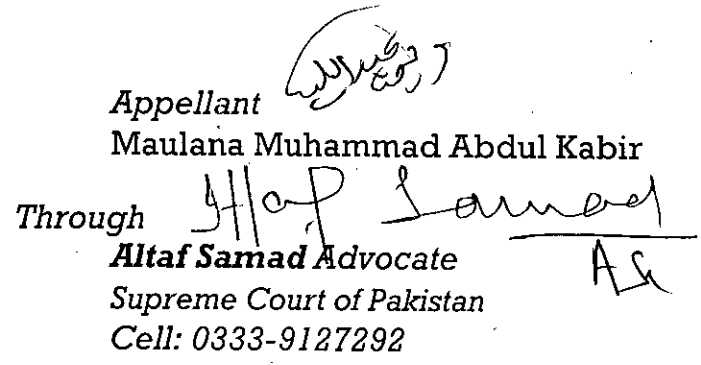 Appellant
Maulana Muhammad Abdul Kabir
Through
Altaf Samad Advocate
Supreme Court of Pakistan
Cell: 0333-9127292